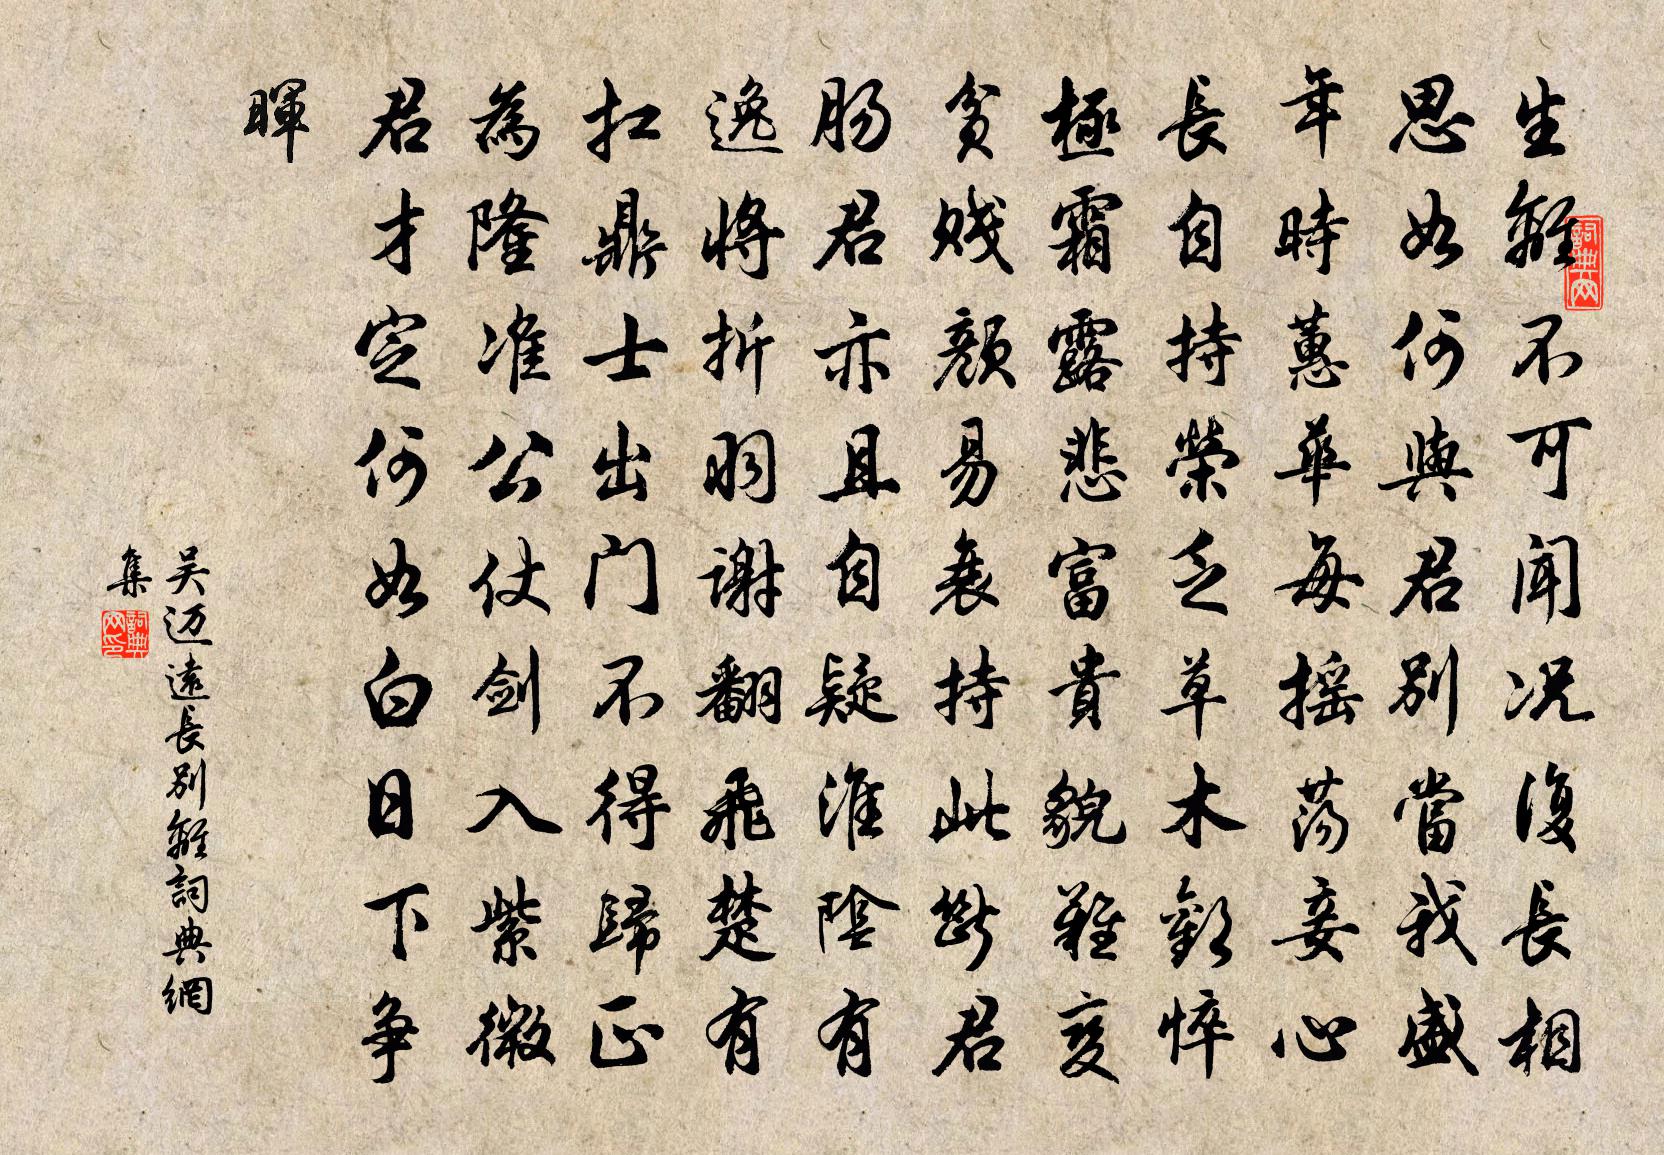 生離不可聞况復長相
思如何與君別當我盛
年時蕙華每摇蕩妾心
長自持榮乏草木歡悴
極霜露悲富貴貌難變
貧賤顏易衰持此斷君
腸君亦且自疑淮陰有
逸將折羽謝翻飛楚有
扛鼎士出门不得歸正
為隆准公仗劍入紫微
君才定何如白日下争
暉
吴迈遠長別離詞典網
集
詞典网
詞典网印